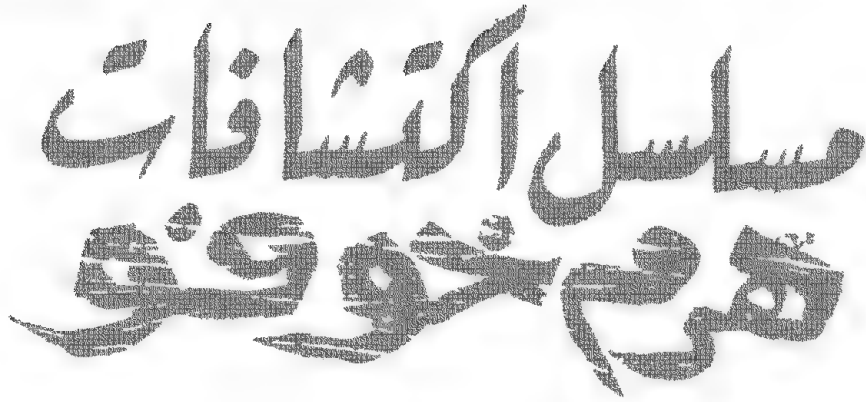 مسلسل اكتشافات
هرم خوفو